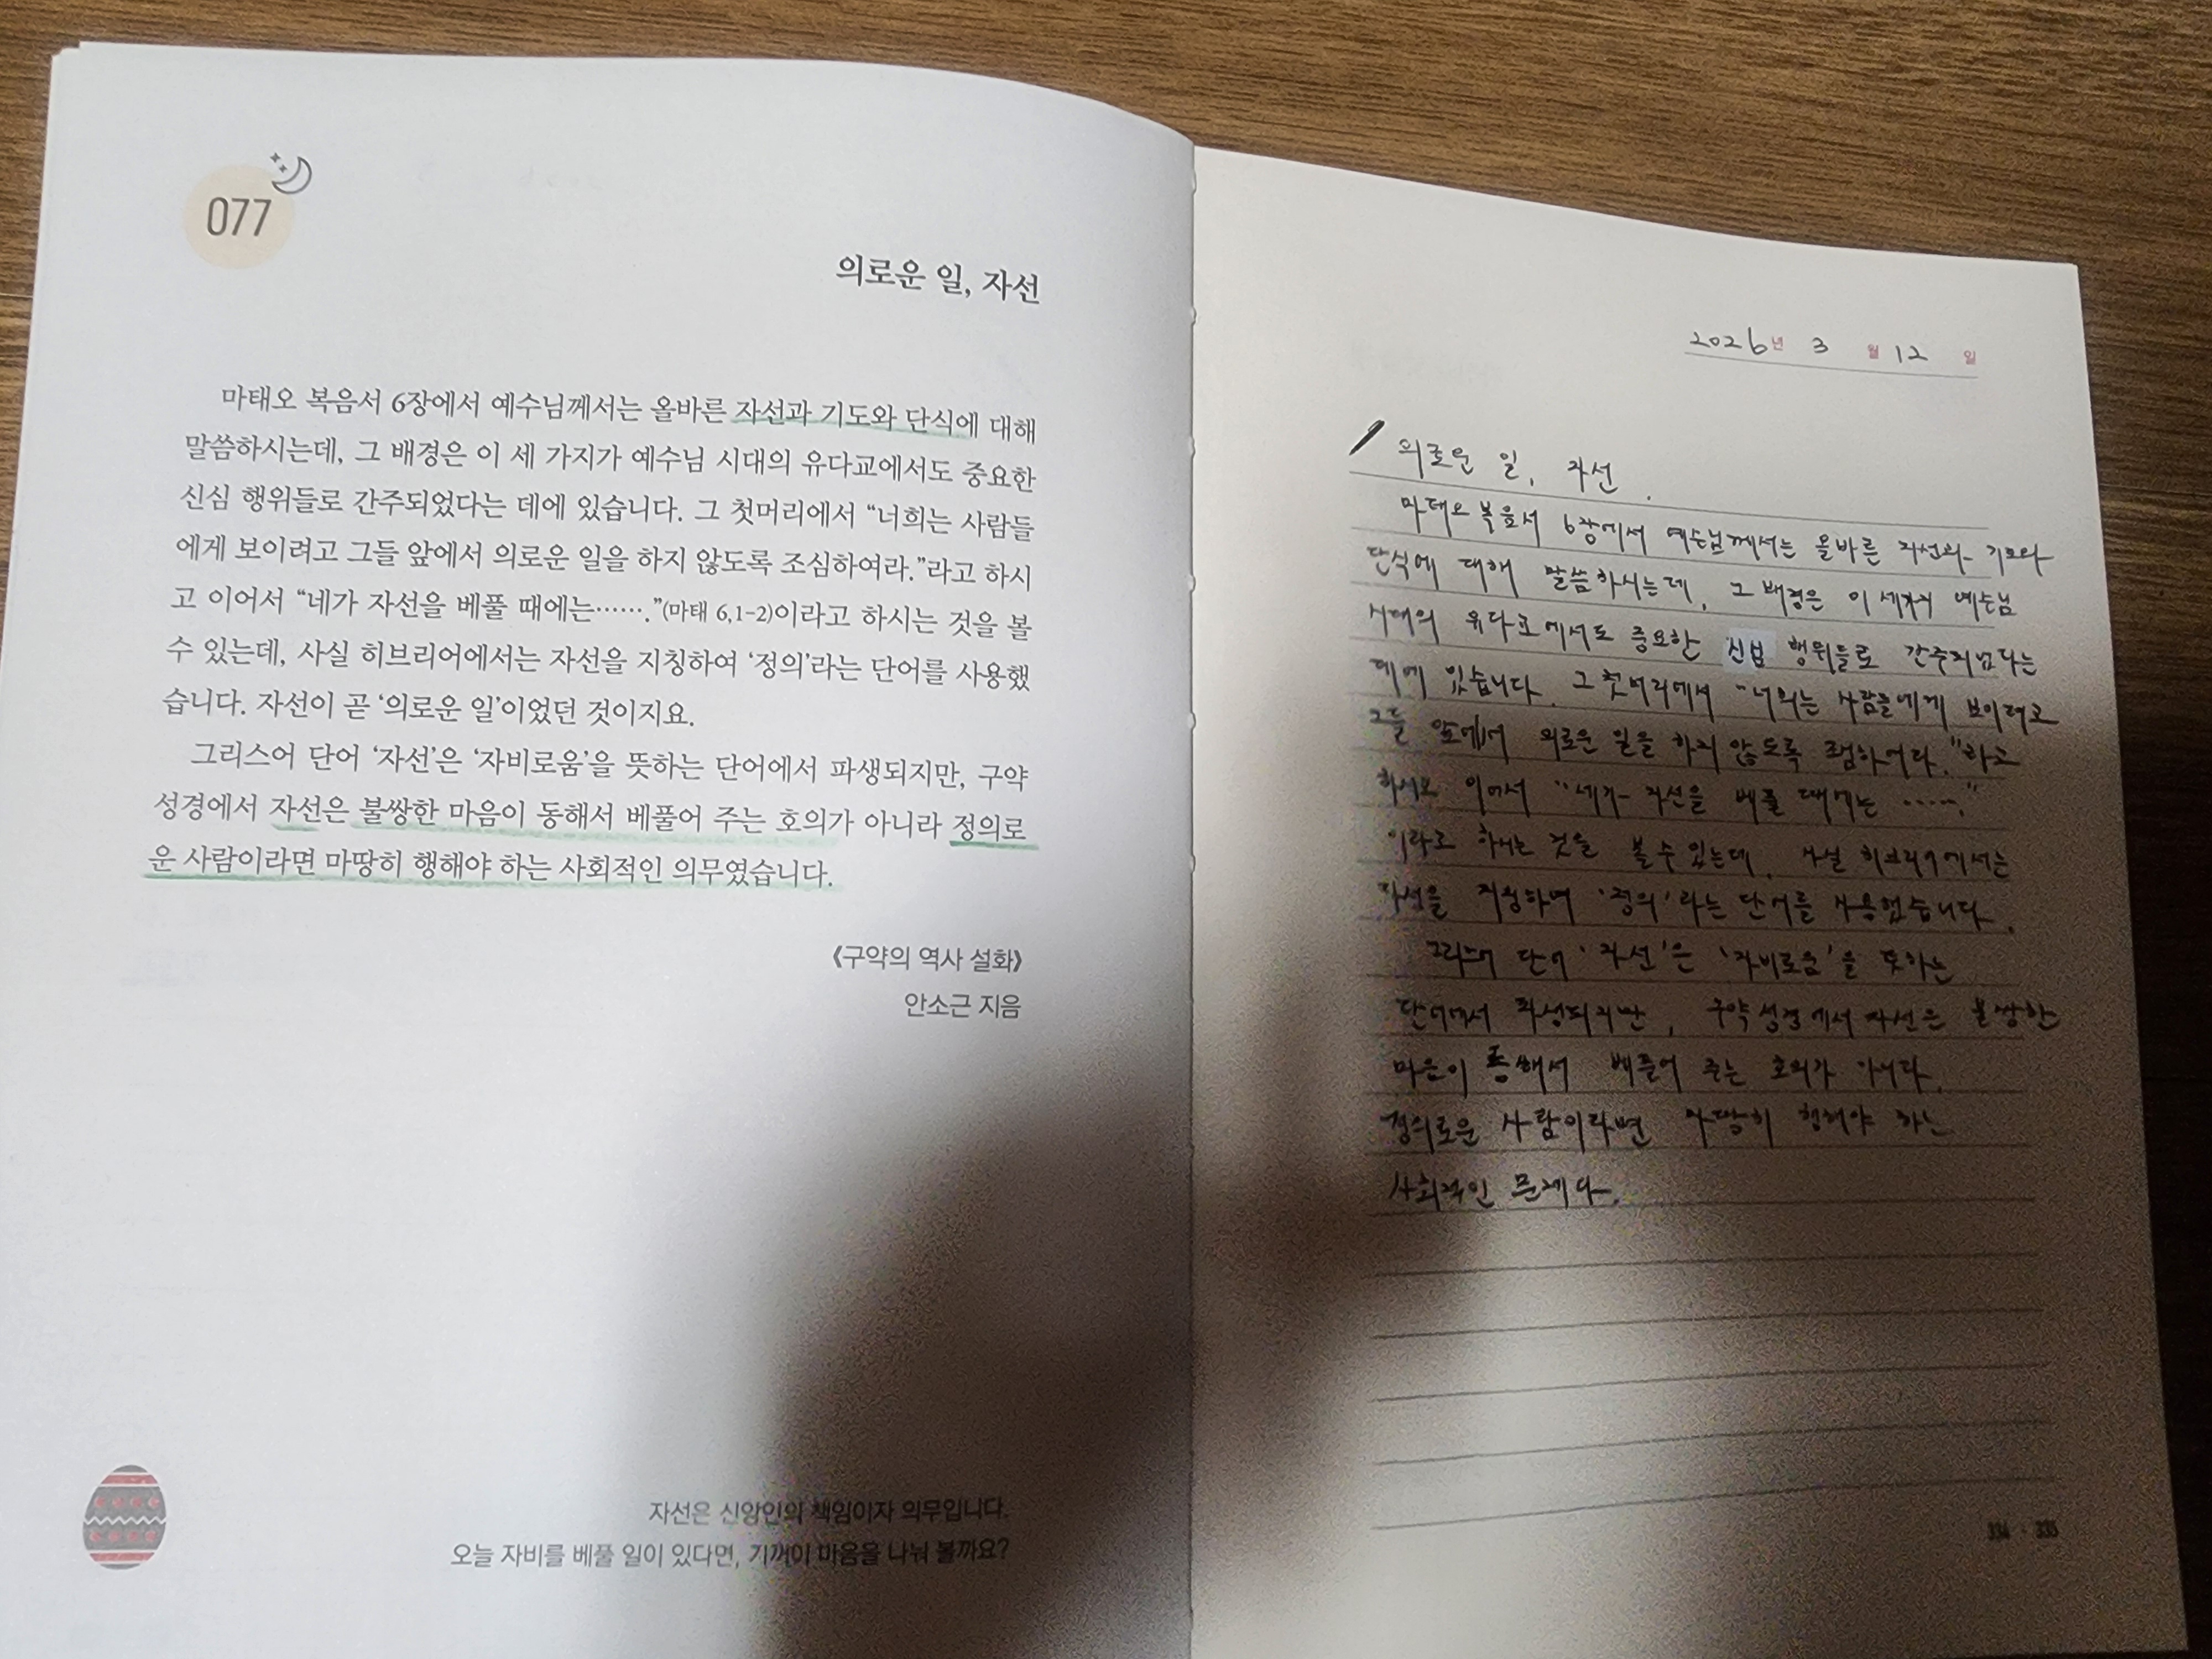 077
의로운 일, 자선
마태오 복음서 6장에서 예수님께서는 올바른 자선과 기도와 단식에 대해
말씀하시는데, 그 배경은 이 세 가지가 예수님 시대의 유다교에서도 중요한
신심 행위들로 간주되었다는 데에 있습니다. 그 첫머리에서 “너희는 사람들
에게 보이려고 그들 앞에서 의로운 일을 하지 않도록 조심하여라.”라고 하시
고 이어서 “네가 자선을 베풀 때에는…….”(마태 6,1-2)이라고 하시는 것을 볼
수 있는데, 사실 히브리어에서는 자선을 지칭하여 ‘정의’라는 단어를 사용했
습니다. 자선이 곧 ‘의로운 일’이었던 것이지요.
그리스어 단어 ‘자선’은 ‘자비로움’을 뜻하는 단어에서 파생되지만, 구약
성경에서 자선은 불쌍한 마음이 동해서 베풀어 주는 호의가 아니라 정의로
운 사람이라면 마땅히 행해야 하는 사회적인 의무였습니다.
《구약의 역사 설화》
안소근 지음
자선은 신앙인의 책임이자 의무입니다.
오늘 자비를 베풀 일이 있다면, 기꺼이 마음을 나눠 볼까요?
2026년 3월 12일
의로운 일, 자선.
마태오 복음서 6장에서 예수님께서는 올바른 자선과 기도와
단식에 대해 말씀하시는데, 그 배경은 이 세가지 예수님
시대의 유다교에서도 중요한 신심 행위들로 간주되었다는
데에 있습니다. 그 첫머리에서 “너희는 사람들에게 보이려고
그들 앞에서 의로운 일을 하지 않도록 조심하여라.”라고
하시고 이어서 “네가 자선을 베풀 때에는 …….”
이라고 하시는 것을 볼 수 있는데, 사실 히브리어에서는
자선을 지칭하여 ‘정의’라는 단어를 사용했습니다.
그리스어 단어 ‘자선’은 ‘자비로움’을 뜻하는
단어에서 파생되지만, 구약성경에서 자선은 불쌍한
마음이 동해서 베풀어 주는 호의가 아니다.
정의로운 사람이라면 마땅히 행해야 하는
사회적인 문제다.